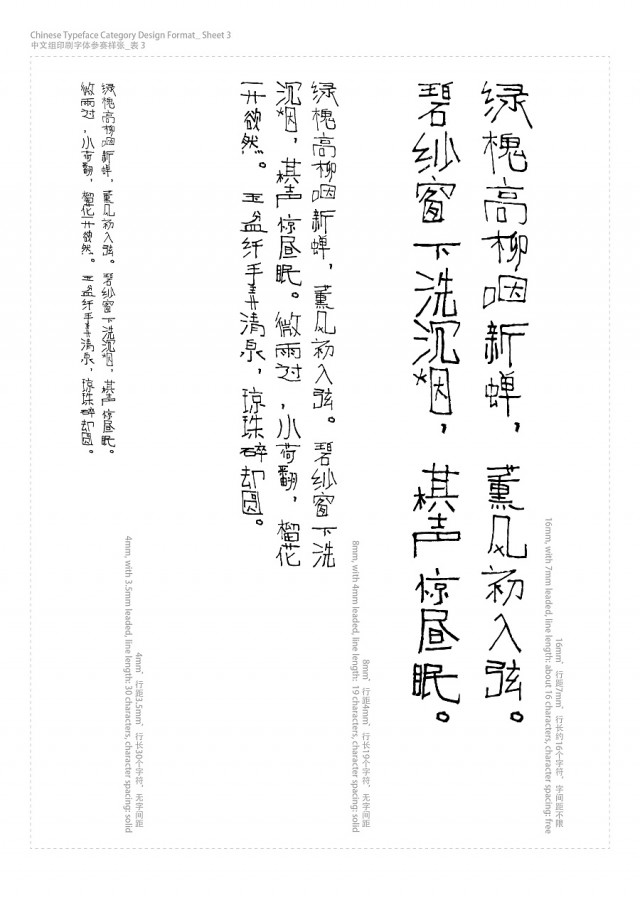 Chinese Typeface Category Design Format_ Sheet 3
中文组印刷字体参赛样张_表 3
绿槐高柳咽新蝉，薰风初入弦。
碧纱窗下洗沉烟，棋声惊昼眠。
16mm，行距7mm，行长约16个字符，字间距不限
16mm, with 7mm leaded, line length: about 16 characters, character spacing: free
绿槐高柳咽新蝉，薰风初入弦。碧纱窗下洗
沉烟，棋声惊昼眠。微雨过，小荷翻，榴花
开欲然。玉盆纤手弄清泉，琼珠碎却圆。
8mm，行距4mm，行长19个字符，无字间距
8mm, with 4mm leaded, line length: 19 characters, character spacing: solid
绿槐高柳咽新蝉，薰风初入弦。碧纱窗下洗沉烟，棋声惊昼眠。
微雨过，小荷翻，榴花开欲然。玉盆纤手弄清泉，琼珠碎却圆。
4mm，行距3.5mm，行长30个字符，无字间距
4mm, with 3.5mm leaded, line length: 30 characters, character spacing: solid